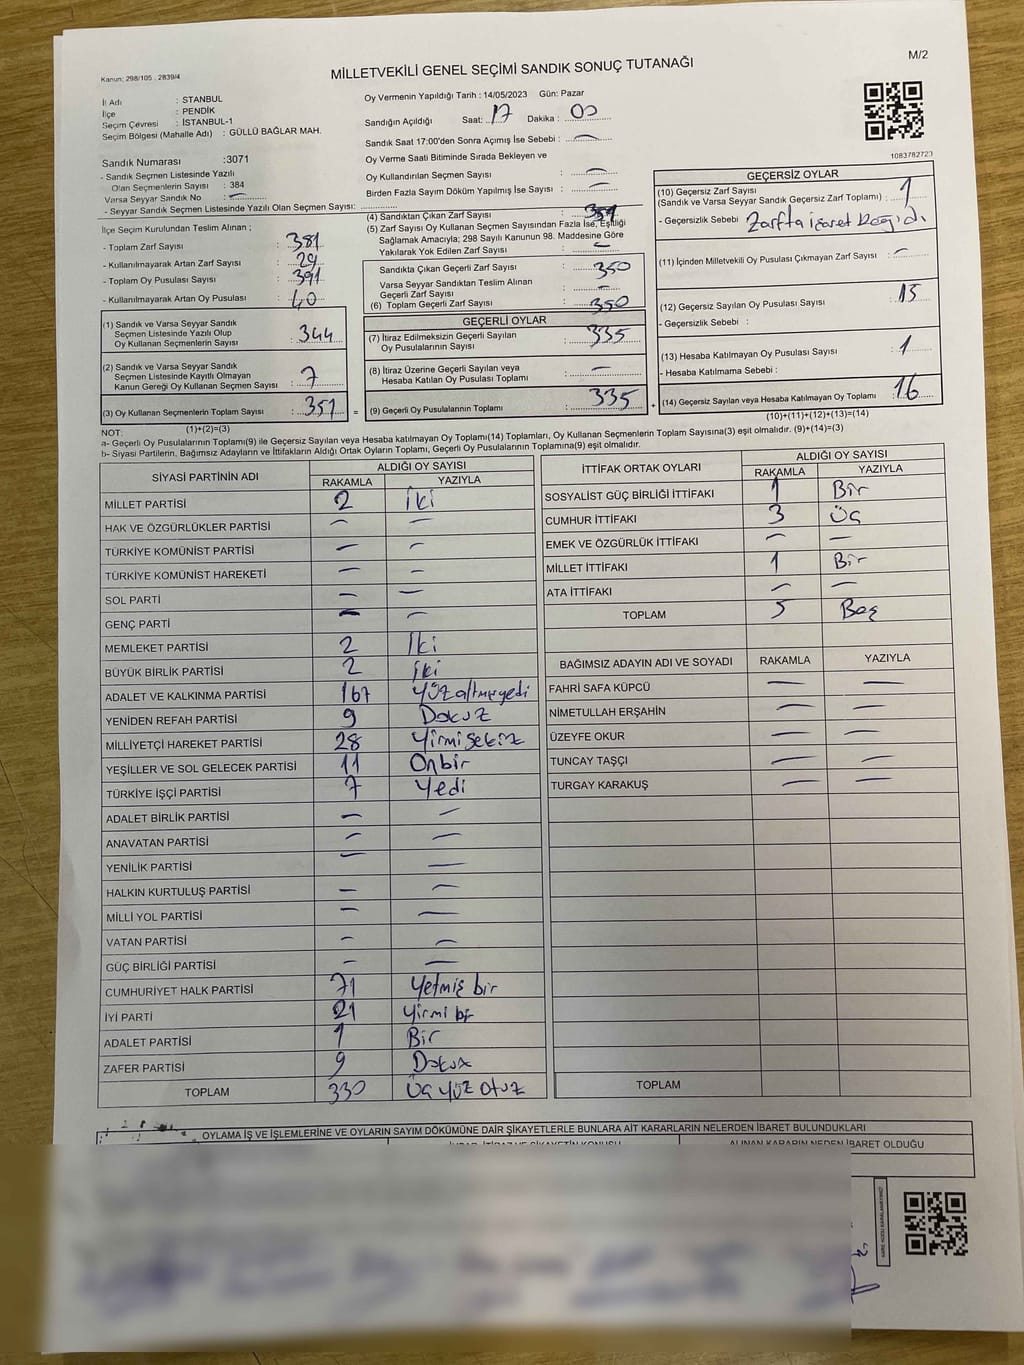 M/2
Kanun; 298/105 . 2839/4
MİLLETVEKİLİ GENEL SEÇİMİ SANDIK SONUÇ TUTANAĞI
İl Adı : STANBUL
İlçe : PENDİK
Seçim Çevresi : İSTANBUL-1
Seçim Bölgesi (Mahalle Adı) : GÜLLÜ BAĞLAR MAH.
Oy Vermenin Yapıldığı Tarih : 14/05/2023 Gün: Pazar
Sandığın Açıldığı Saat: 17 Dakika : 00
Sandık Saat 17:00'den Sonra Açımış İse Sebebi : —
Oy Verme Saati Bitiminde Sırada Bekleyen ve
Oy Kullandırılan Seçmen Sayısı : —
Birden Fazla Sayım Döküm Yapılmış İse Sayısı : —
1083782723
Sandık Numarası :3071
- Sandık Seçmen Listesinde Yazılı
Olan Seçmenlerin Sayısı : 384
Varsa Seyyar Sandık No : —
- Seyyar Sandık Seçmen Listesinde Yazılı Olan Seçmen Sayısı:
İlçe Seçim Kurulundan Teslim Alınan ;
- Toplam Zarf Sayısı : 381
- Kullanılmayarak Artan Zarf Sayısı : 29
- Toplam Oy Pusulası Sayısı : 391
- Kullanılmayarak Artan Oy Pusulası : 40
(1) Sandık ve Varsa Seyyar Sandık
Seçmen Listesinde Yazılı Olup
Oy Kullanan Seçmenlerin Sayısı : 344
(2) Sandık ve Varsa Seyyar Sandık
Seçmen Listesinde Kayıtlı Olmayan
Kanun Gereği Oy Kullanan Seçmen Sayısı : 7
(3) Oy Kullanan Seçmenlerin Toplam Sayısı : 351 =
(1)+(2)=(3)
(4) Sandıktan Çıkan Zarf Sayısı : 351
(5) Zarf Sayısı Oy Kullanan Seçmen Sayısından Fazla İse, Eşitliği
Sağlamak Amacıyla; 298 Sayılı Kanunun 98. Maddesine Göre
Yakılarak Yok Edilen Zarf Sayısı : —
Sandıkta Çıkan Geçerli Zarf Sayısı : 350
Varsa Seyyar Sandıktan Teslim Alınan
Geçerli Zarf Sayısı : —
(6) Toplam Geçerli Zarf Sayısı : 350
GEÇERLİ OYLAR
(7) İtiraz Edilmeksizin Geçerli Sayılan
Oy Pusulalarının Sayısı : 335
(8) İtiraz Üzerine Geçerli Sayılan veya
Hesaba Katılan Oy Pusulası Toplamı : —
(9) Geçerli Oy Pusulalarının Toplamı : 335 +
GEÇERSİZ OYLAR
(10) Geçersiz Zarf Sayısı
(Sandık ve Varsa Seyyar Sandık Geçersiz Zarf Toplamı) : 1
- Geçersizlik Sebebi : Zarfta işaret koğıdı
(11) İçinden Milletvekili Oy Pusulası Çıkmayan Zarf Sayısı : —
(12) Geçersiz Sayılan Oy Pusulası Sayısı : 15
- Geçersizlik Sebebi :
(13) Hesaba Katılmayan Oy Pusulası Sayısı : 1
- Hesaba Katılmama Sebebi :
(14) Geçersiz Sayılan veya Hesaba Katılmayan Oy Toplamı : 16
(10)+(11)+(12)+(13)=(14)
NOT:
a- Geçerli Oy Pusulalarının Toplamı(9) ile Geçersiz Sayılan veya Hesaba katılmayan Oy Toplamı(14) Toplamları, Oy Kullanan Seçmenlerin Toplam Sayısına(3) eşit olmalıdır. (9)+(14)=(3)
b- Siyasi Partilerin, Bağımsız Adayların ve İttifakların Aldığı Ortak Oyların Toplamı, Geçerli Oy Pusulalarının Toplamına(9) eşit olmalıdır.
SİYASİ PARTİNİN ADI ALDIĞI OY SAYISI
RAKAMLA YAZIYLA
MİLLET PARTİSİ 2 İki
HAK VE ÖZGÜRLÜKLER PARTİSİ — —
TÜRKİYE KOMÜNİST PARTİSİ — —
TÜRKİYE KOMÜNİST HAREKETİ — —
SOL PARTİ — —
GENÇ PARTİ — —
MEMLEKET PARTİSİ 2 İki
BÜYÜK BİRLİK PARTİSİ 2 İki
ADALET VE KALKINMA PARTİSİ 167 Yüzaltmışyedi
YENİDEN REFAH PARTİSİ 9 Dokuz
MİLLİYETÇİ HAREKET PARTİSİ 28 Yirmisekiz
YEŞİLLER VE SOL GELECEK PARTİSİ 11 Onbir
TÜRKİYE İŞÇİ PARTİSİ 7 Yedi
ADALET BİRLİK PARTİSİ — —
ANAVATAN PARTİSİ — —
YENİLİK PARTİSİ — —
HALKIN KURTULUŞ PARTİSİ — —
MİLLİ YOL PARTİSİ — —
VATAN PARTİSİ — —
GÜÇ BİRLİĞİ PARTİSİ — —
CUMHURİYET HALK PARTİSİ 71 Yetmiş bir
İYİ PARTİ 21 Yirmi bir
ADALET PARTİSİ 1 Bir
ZAFER PARTİSİ 9 Dokuz
TOPLAM 330 Üç yüz otuz
İTTİFAK ORTAK OYLARI ALDIĞI OY SAYISI
RAKAMLA YAZIYLA
SOSYALİST GÜÇ BİRLİĞİ İTTİFAKI 1 Bir
CUMHUR İTTİFAKI 3 Üç
EMEK VE ÖZGÜRLÜK İTTİFAKI — —
MİLLET İTTİFAKI 1 Bir
ATA İTTİFAKI — —
TOPLAM 5 Beş
BAĞIMSIZ ADAYIN ADI VE SOYADI RAKAMLA YAZIYLA
FAHRİ SAFA KÜPCÜ — —
NİMETULLAH ERŞAHİN — —
ÜZEYFE OKUR — —
TUNCAY TAŞÇI — —
TURGAY KARAKUŞ — —
TOPLAM
OYLAMA İŞ VE İŞLEMLERİNE VE OYLARIN SAYIM DÖKÜMÜNE DAİR ŞİKAYETLERLE BUNLARA AİT KARARLARIN NELERDEN İBARET BULUNDUKLARI
ALINAN KARARIN NEDEN İBARET OLDUĞU